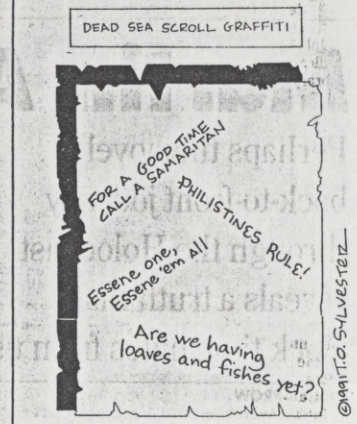 DEAD SEA SCROLL GRAFFITI
FOR A GOOD TIME
CALL A SAMARITAN
PHILISTINES RULE!
Essene one,
Essene 'em all
Are we having
loaves and fishes yet?
©1991 T.O. SYLVESTER